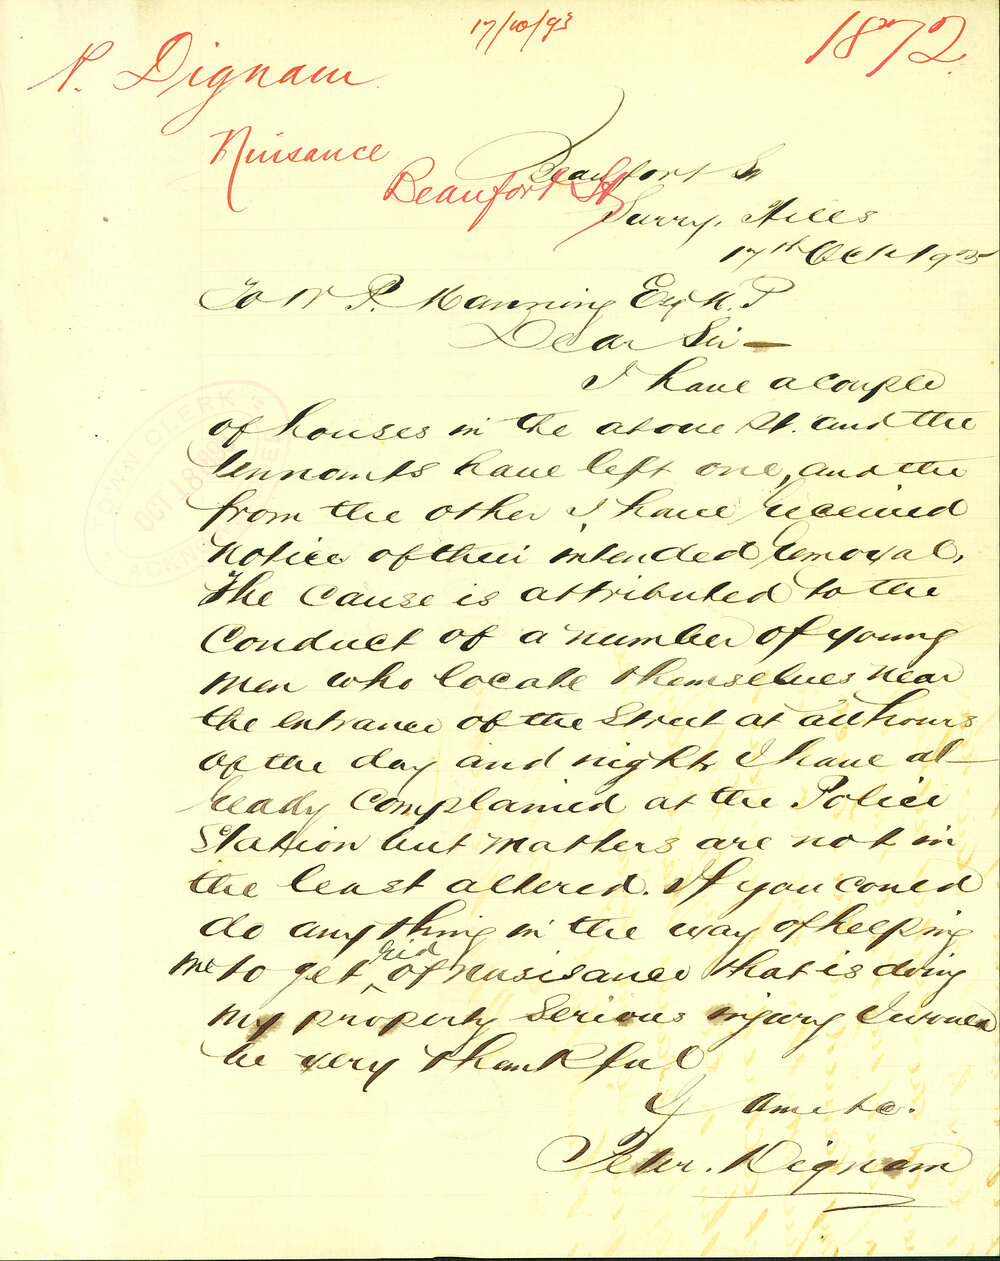 17/10/93
1872
P. Dignam
Nuisance
Beaufort St
Beaufort St
Surry, Hills
17th Oct 1893
To W P. Manning Esq M. P
Dear Sir —
I have a couple
of houses in the above St. and the
tennants have left one, and the
from the other I have received
notice of their intended removal,
The cause is attributed to the
conduct of a number of young
men who locate themselves near
the entrance of the Street at all hours
of the day and night, I have al-
ready complained at the Police
Station but matters are not in
the least altered. If you could
do anything in the way of helping
me to get rid of nusisance that is doing
my property serious injury I would
be very thankful
I am etc.
Peter. Dignam
TOWN CLERK
OCT 18